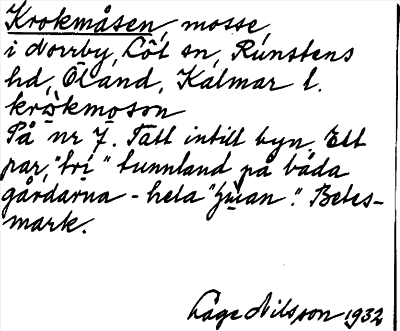 Krokmåsen, mosse,
i Norrby, Löt sn, Runstens
hd, Öland, Kalmar l.
krὼkmoson
På nr 7. Tätt intill byn. Ett
par, "tri" tunnland på båda
gårdarna - hela "himan". Betes-
mark.
Åge Nilsson 1932